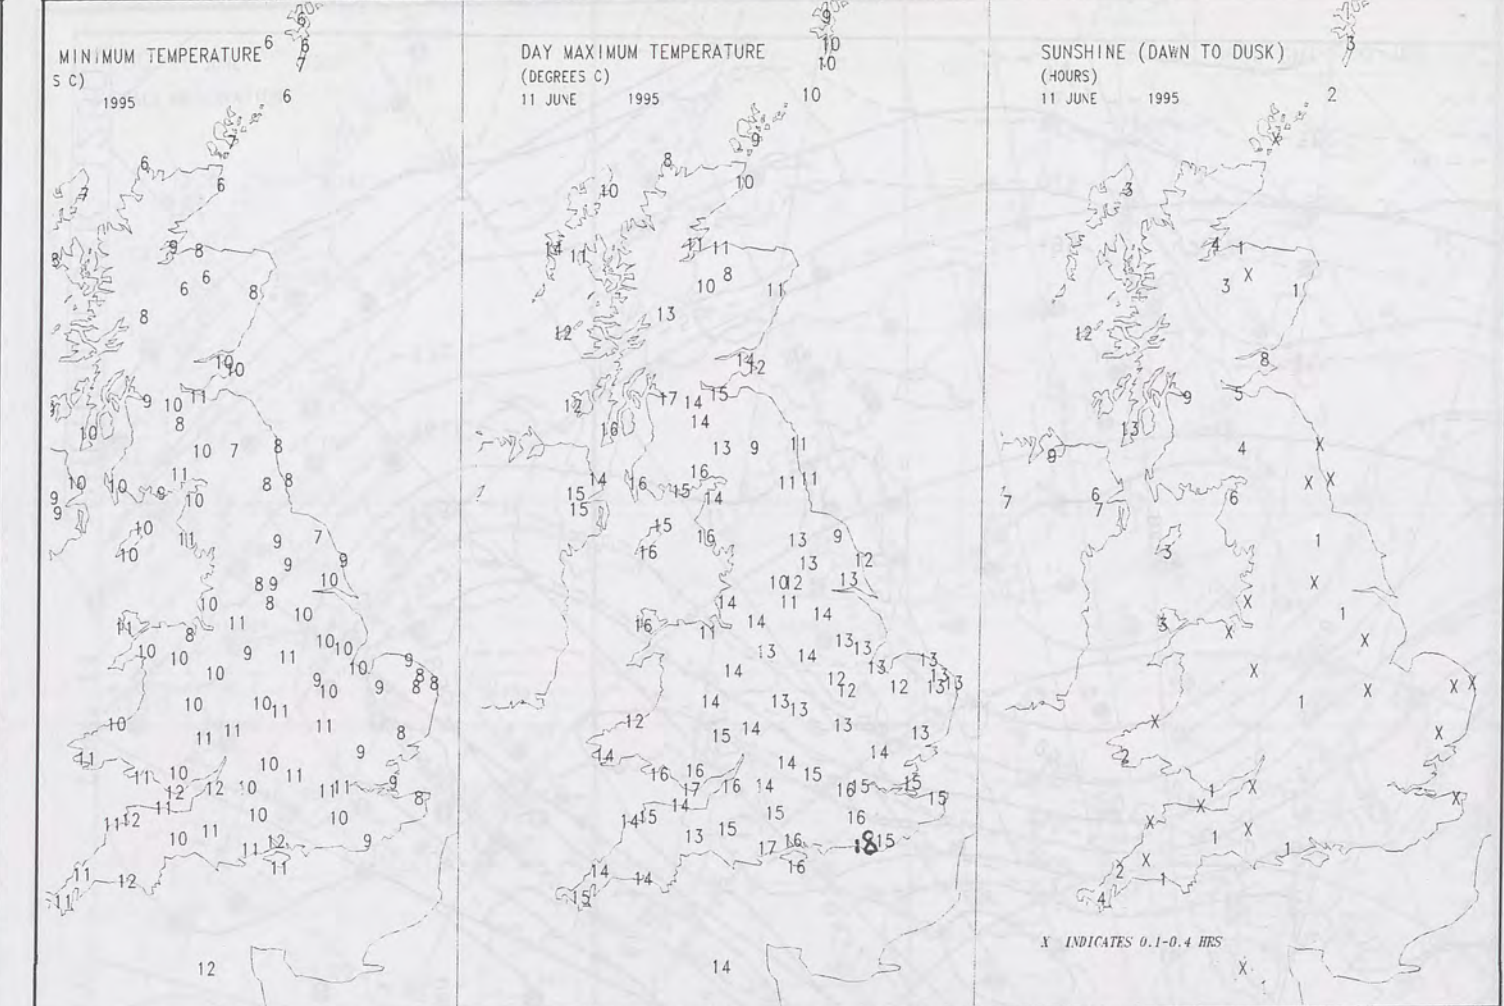 MINIMUM TEMPERATURE
S C)
1995
6
6
6
7
6
6
6
7
9 8
8
6
6
8
8
10
10
9
10
11
8
10
10
7
8
11
8
8
10
10
9
10
9
9
10
11
10
9
7
9
9
8 9
10
8
10
10
11
11
8
10
10
10
10
9
11
10
9
10
8
8 8
9
10
9
10
10
11
10
11
11
11
8
11
9
10
10
11
12
12
10
11 11
9
8
11
11 12
10
11
10
10
12
11
9
11
11
12
11
12
DAY MAXIMUM TEMPERATURE
(DEGREES C)
11 JUNE 1995
9
10
10
10
9
8
10
10
14
11
11 11
8
10
11
13
12
14
12
12
17
14
15
16
14
13
9
11
14
16
16
11 11
15
15
15
14
15
16
16
13
9
13
12
10 12
13
14
11
14
16
11
14
13
14
13
13
13
14
13
12
12
12
13
13 13
14
13
13
12
15
14
13
13
14
14
16
16
17
16
14
14
15
16 15
15
15
14
14 15
13
15
15
16
17
16
16
18 15
14
14
15
14
SUNSHINE (DAWN TO DUSK)
(HOURS)
11 JUNE 1995
3
2
X
3
4 1
X
3
1
12
8
5
9
13
9
4
X
X
X
7
6
7
6
3
1
X
X
1
3
X
X
X
X
1
X X
X
X
2
1
X
X
X
X
1
X
1
2
X
1
4
X INDICATES 0.1-0.4 HRS
X